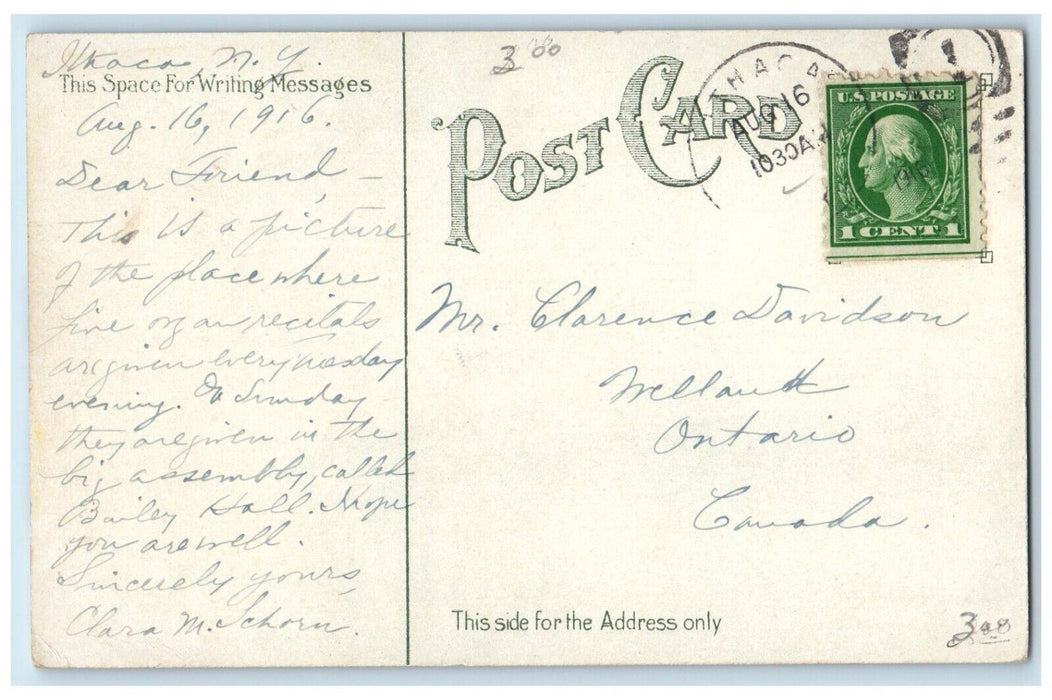 Ithaca, N.Y.
This Space For Writing Messages
Aug. 16, 1916.
Dear Friend, –
This is a picture
of the place where
fine organ recitals
are given every Tuesday
evening. Sunday
they are given in the
big assembly, called
Bailey Hall. I hope
you are well.
Sincerely yours,
Clara M. Schorn.
3 00
POST CARD
ITHACA
AUG 16
1030A
U.S. POSTAGE
1 CENT 1
Mr. Clarence Davidson
Ontario
Canada.
This side for the Address only
3.00